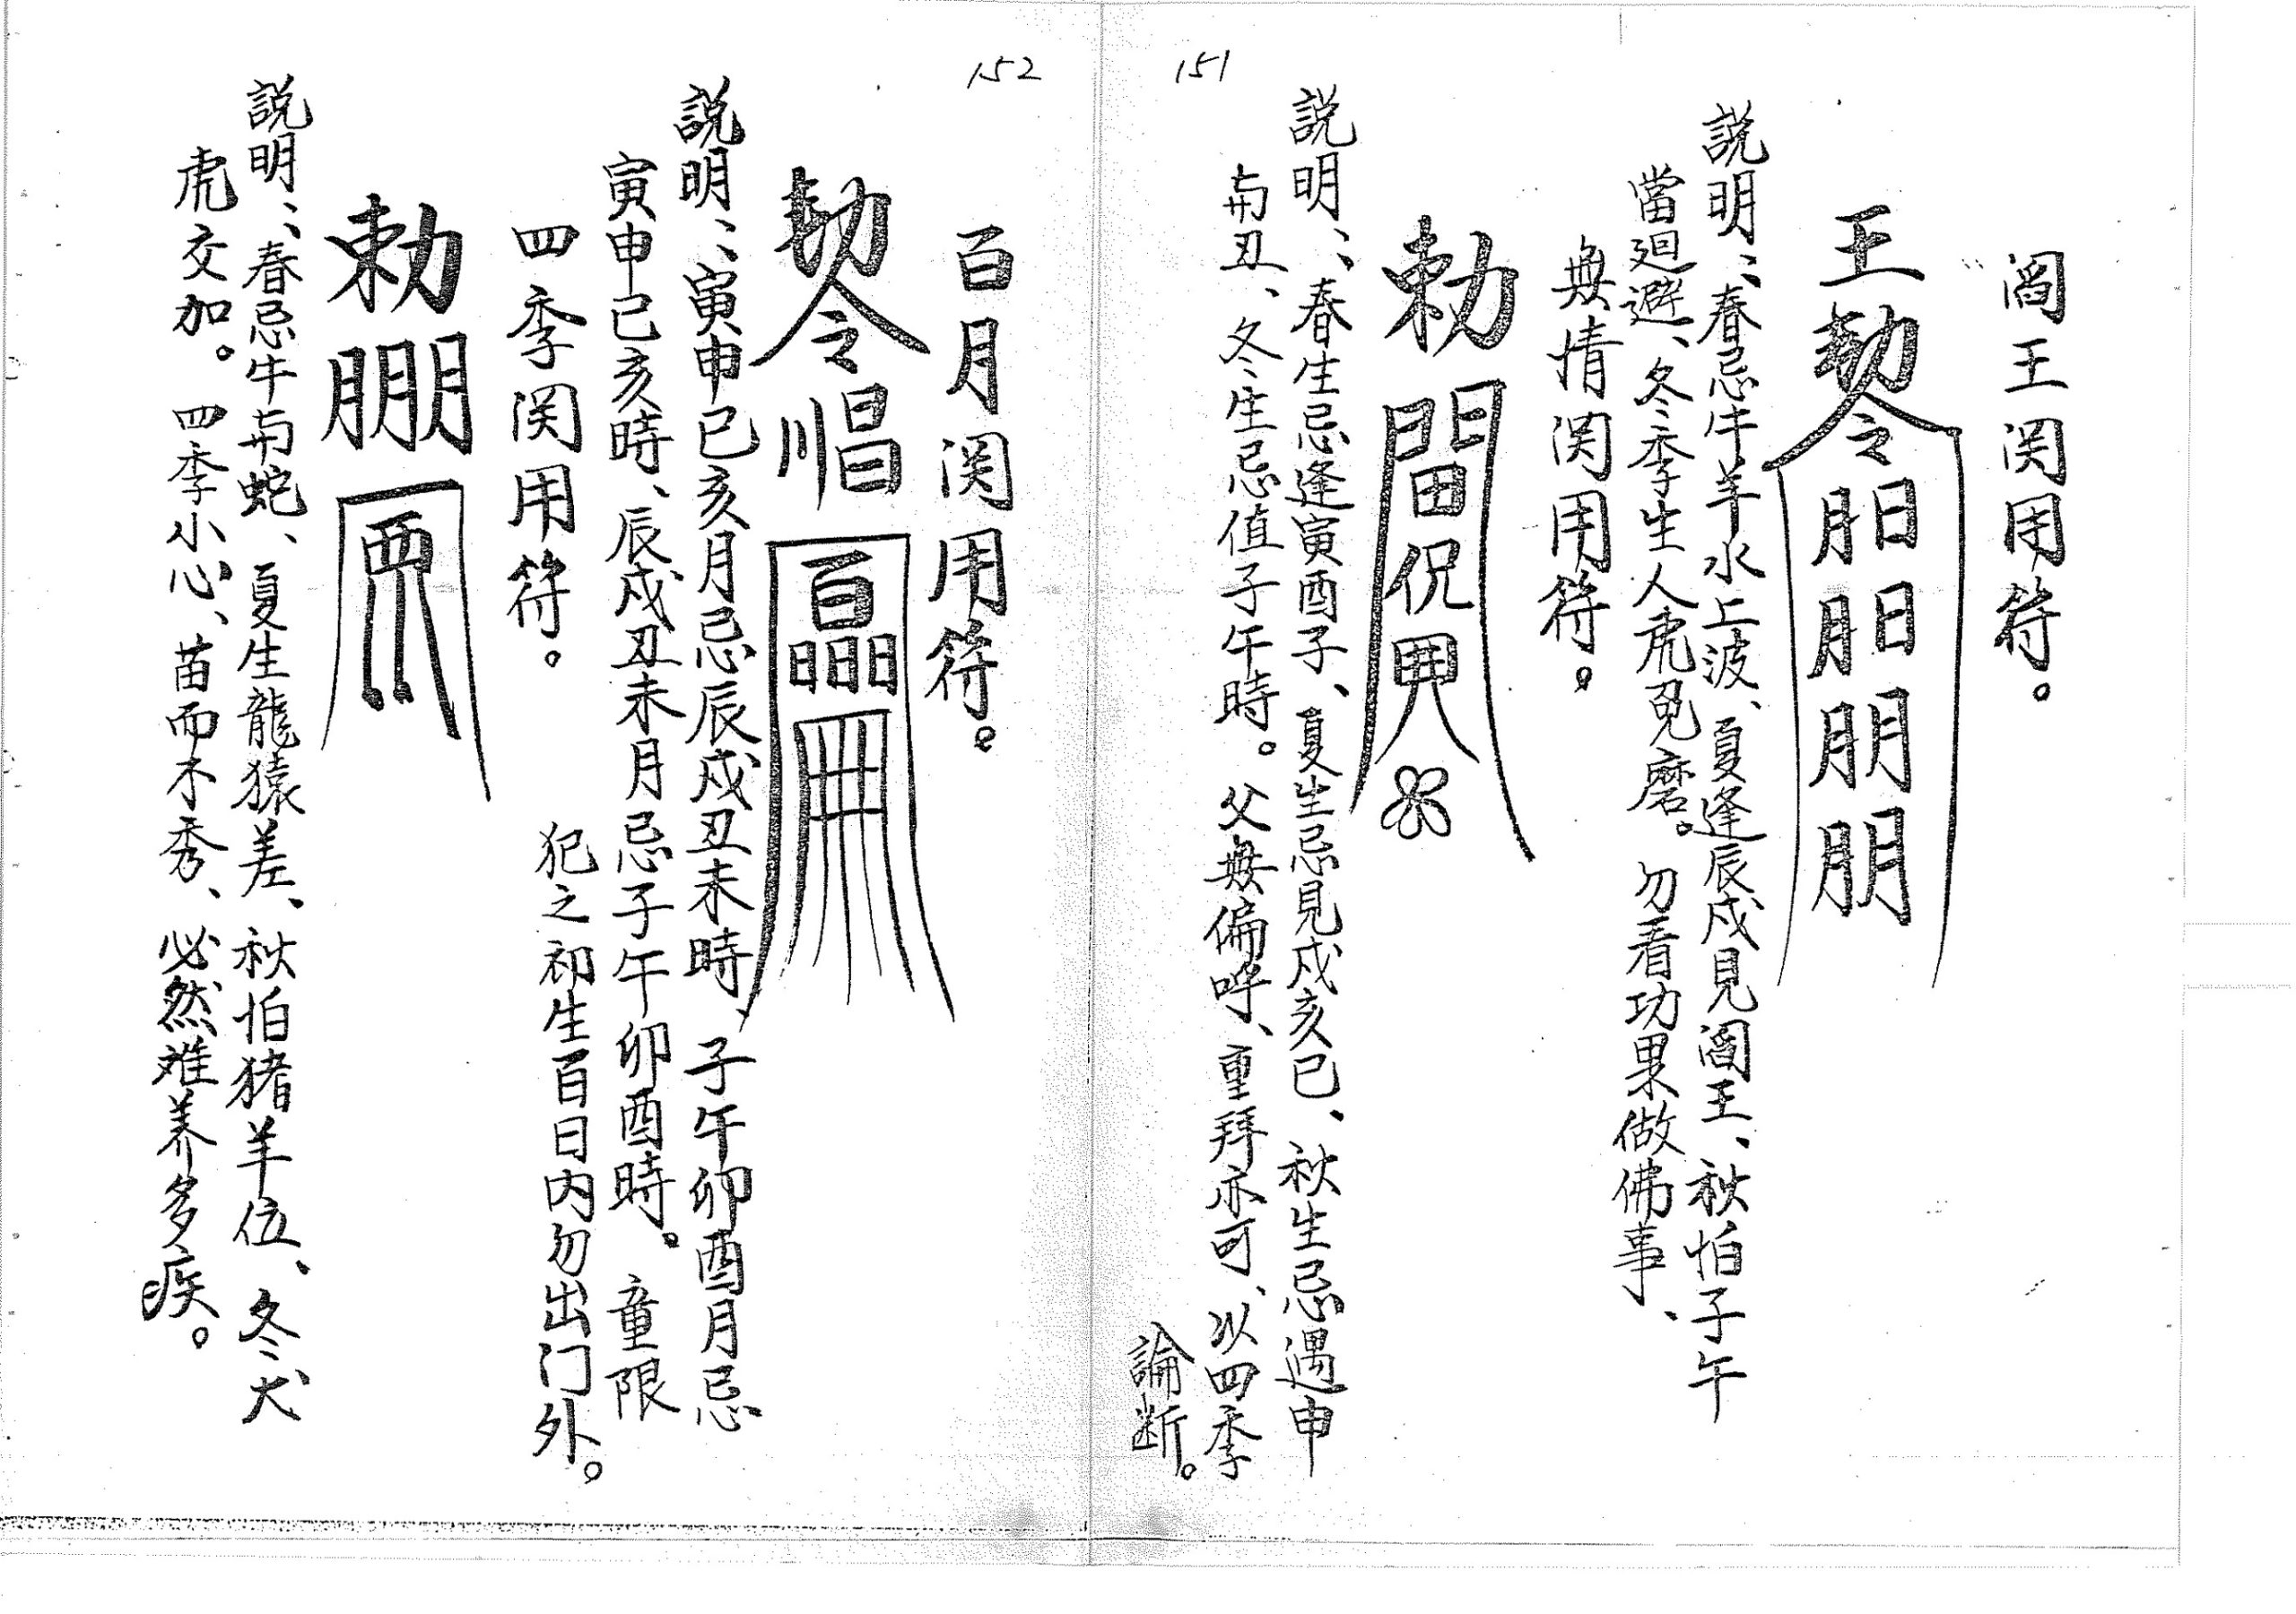 151
閻王関用符。
王勅令
日日
月月
朋
朋
説明：春忌牛羊水上波、夏逢辰戌見閻王、秋怕子午
當廻避、冬季生人虎兔磨。勿看功果做佛事、
無情関用符。
勅
説明：春生忌逢寅酉子、夏生忌見戌亥巳、秋生忌遇申
与丑、冬生忌值子午時。父無偏呼、重拜亦可、以四季
論断。
152
百月関用符。
勅令
説明：寅申巳亥月忌辰戌丑未時、子午卯酉月忌
寅申巳亥時、辰戌丑未月忌子午卯酉時。童限
犯之初生百日内勿出门外。
四季関用符。
勅
説明：春忌牛与蛇、夏生龍猿差、秋怕猪羊位、冬犬
虎交加。四季小心、苗而不秀、必然难养多疾。